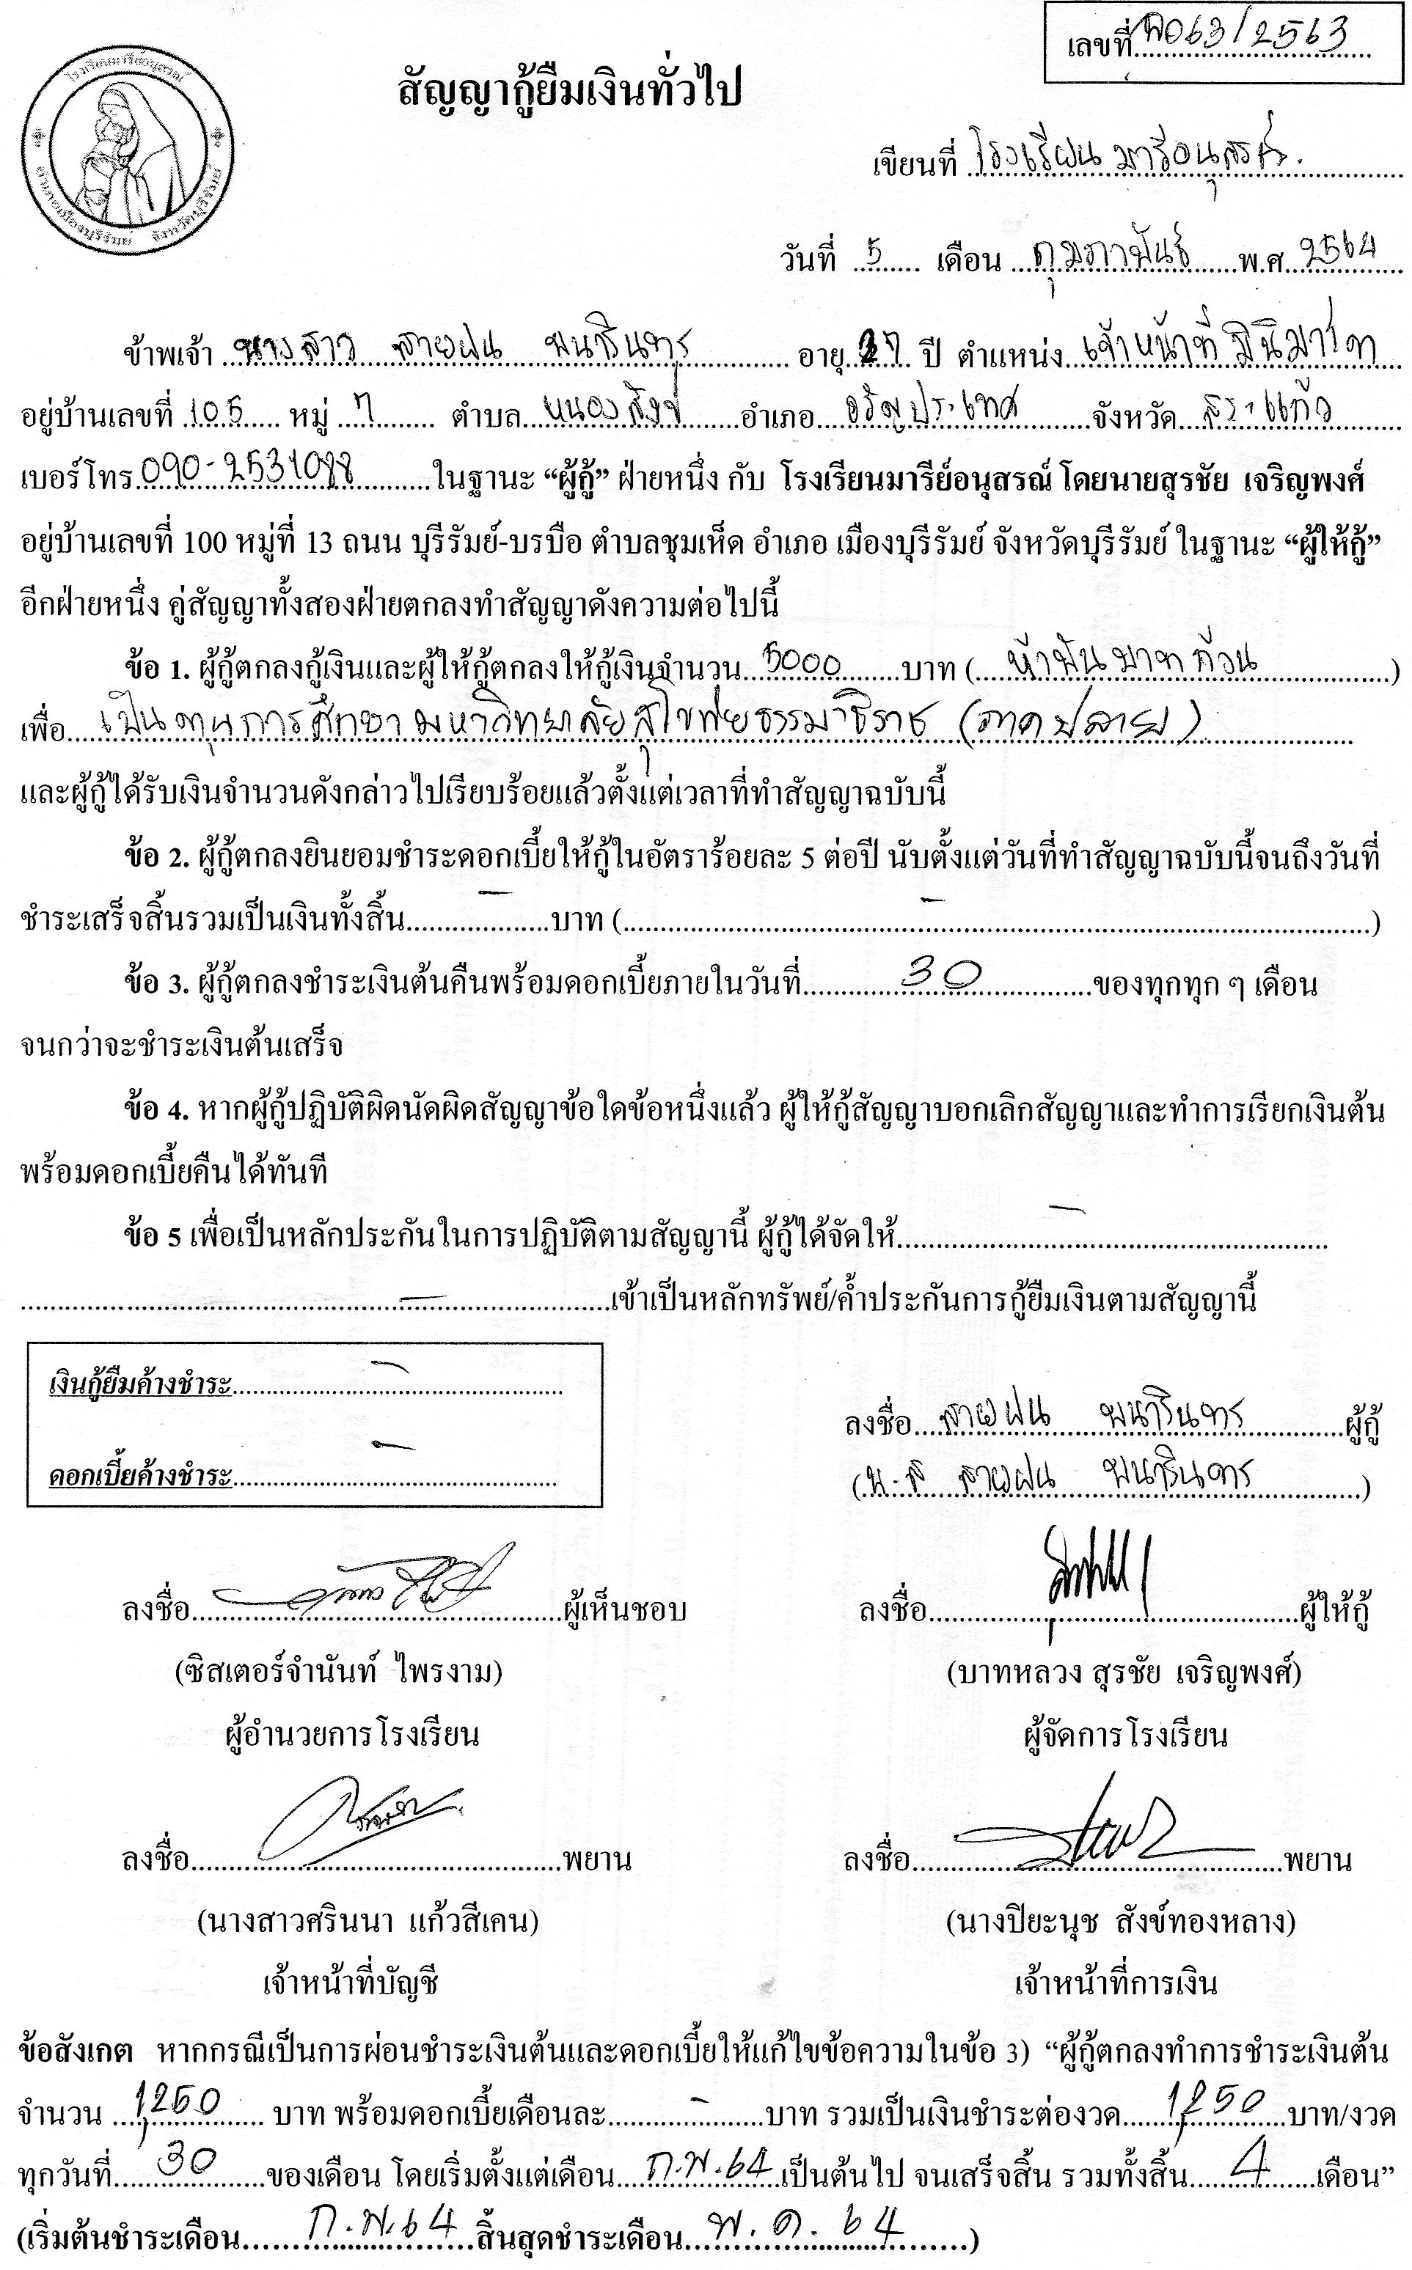 เลขที่ พ063/2563
โรงเรียนมารีย์อนุสรณ์
อำเภอเมืองบุรีรัมย์ จังหวัดบุรีรัมย์
สัญญากู้ยืมเงินทั่วไป
เขียนที่ โรงเรียนมารีอนุสรณ์.
วันที่ 5 เดือน กุมภาพันธ์ พ.ศ. 2564
ข้าพเจ้า นางสาว สายฝน พนารินทร อายุ 37 ปี ตำแหน่ง เจ้าหน้าที่มินิมาร์ท
อยู่บ้านเลขที่ 105 หมู่ 7 ตำบล หนองสังข์ อำเภอ อรัญประเทศ จังหวัด สระแก้ว
เบอร์โทร 090-2531088 ในฐานะ “ผู้กู้” ฝ่ายหนึ่ง กับ โรงเรียนมารีย์อนุสรณ์ โดยนายสุรชัย เจริญพงศ์
อยู่บ้านเลขที่ 100 หมู่ที่ 13 ถนน บุรีรัมย์-บรบือ ตำบลชุมเห็ด อำเภอ เมืองบุรีรัมย์ จังหวัดบุรีรัมย์ ในฐานะ “ผู้ให้กู้”
อีกฝ่ายหนึ่ง คู่สัญญาทั้งสองฝ่ายตกลงทำสัญญาดังความต่อไปนี้
ข้อ 1. ผู้กู้ตกลงกู้เงินและผู้ให้กู้ตกลงให้กู้เงินจำนวน 5000 บาท ( ห้าพันบาทถ้วน )
เพื่อ เป็นทุนการศึกษามหาวิทยาลัยสุโขทัยธรรมาธิราช (ภาคปลาย)
และผู้กู้ได้รับเงินจำนวนดังกล่าวไปเรียบร้อยแล้วตั้งแต่เวลาที่ทำสัญญาฉบับนี้
ข้อ 2. ผู้กู้ตกลงยินยอมชำระดอกเบี้ยให้กู้ในอัตราร้อยละ 5 ต่อปี นับตั้งแต่วันที่ทำสัญญาฉบับนี้จนถึงวันที่
ชำระเสร็จสิ้นรวมเป็นเงินทั้งสิ้น - บาท ( - )
ข้อ 3. ผู้กู้ตกลงชำระเงินต้นคืนพร้อมดอกเบี้ยภายในวันที่ 30 ของทุกทุก ๆ เดือน
จนกว่าจะชำระเงินต้นเสร็จ
ข้อ 4. หากผู้กู้ปฏิบัติผิดนัดผิดสัญญาข้อใดข้อหนึ่งแล้ว ผู้ให้กู้สัญญาบอกเลิกสัญญาและทำการเรียกเงินต้น
พร้อมดอกเบี้ยคืนได้ทันที
ข้อ 5 เพื่อเป็นหลักประกันในการปฏิบัติตามสัญญานี้ ผู้กู้ได้จัดให้ -
- เข้าเป็นหลักทรัพย์/ค้ำประกันการกู้ยืมเงินตามสัญญานี้
เงินกู้ยืมค้างชำระ -
ดอกเบี้ยค้างชำระ -
ลงชื่อ สายฝน พนารินทร ผู้กู้
(น.ส สายฝน พนารินทร)
ลงชื่อ ผู้เห็นชอบ ลงชื่อ ผู้ให้กู้
(ซิสเตอร์จำนันท์ ไพรงาม) (บาทหลวง สุรชัย เจริญพงศ์)
ผู้อำนวยการโรงเรียน ผู้จัดการโรงเรียน
ลงชื่อ พยาน ลงชื่อ พยาน
(นางสาวศรินนา แก้วสีเคน) (นางปิยะนุช สังข์ทองหลาง)
เจ้าหน้าที่บัญชี เจ้าหน้าที่การเงิน
ข้อสังเกต หากกรณีเป็นการผ่อนชำระเงินต้นและดอกเบี้ยให้แก้ไขข้อความในข้อ 3) “ผู้กู้ตกลงทำการชำระเงินต้น
จำนวน 1,250 บาท พร้อมดอกเบี้ยเดือนละ - บาท รวมเป็นเงินชำระต่องวด 1,250 บาท/งวด
ทุกวันที่ 30 ของเดือน โดยเริ่มตั้งแต่เดือน ก.พ. 64 เป็นต้นไป จนเสร็จสิ้น รวมทั้งสิ้น 4 เดือน”
(เริ่มต้นชำระเดือน ก.พ. 64 สิ้นสุดชำระเดือน พ.ค. 64 )